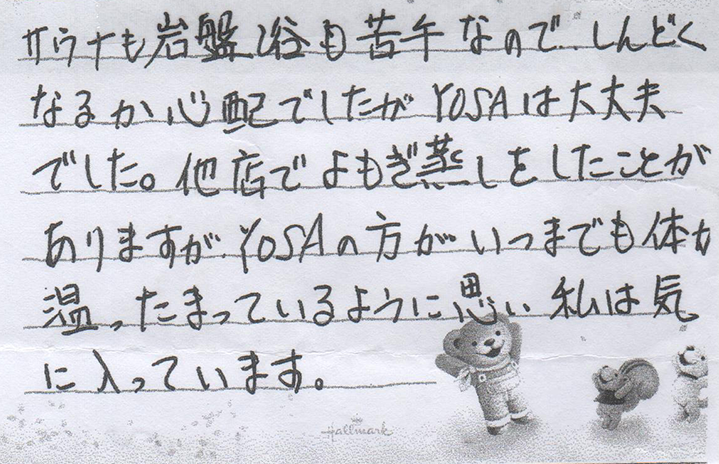 サウナも岩盤浴も苦手なので、しんどく
なるか心配でしたが YOSAは大丈夫
でした。他店でよもぎ蒸しをしたことが
ありますが、YOSAの方がいつまでも体が
温ったまっているように思い 私は気
に入っています。
Hallmark